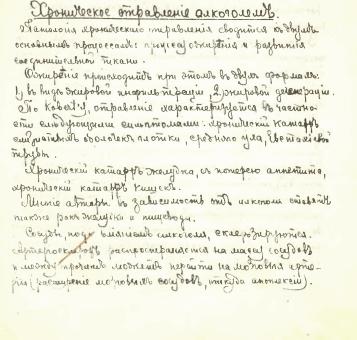 Хроническое отравленіе алкоголемъ.
Патологія хроническаго отравленія сводится къ двумъ
основнымъ процессамъ: процессу ожирѣнія и развитія
соединительной ткани.
Ожирѣніе происходитъ при этомъ въ двухъ формахъ:
1) въ видѣ жировой инфильтраціи, 2) жировой дегенераціи.
По отравленіе характеризуется въ частно-
сти слѣдующими симптомами: хроническій катарръ
слизистыхъ оболочекъ глотки, средняго уха, Евстахіевой
трубы.
Хроническій катарръ желудка, съ потерею аппетита,
хроническій катарръ кишекъ.
авторы, въ зависимость отъ алкоголя ставятъ
также ракъ желудка и пищевода.
Сосуды, подъ вліяніемъ алкоголя, склерозируются.
Артеріосклерозъ распространяется на массу сосудовъ
и между прочимъ можетъ перейти на мозговыя арте-
ріи (расширеніе мозговыхъ сосудовъ, откуда апоплексіи).